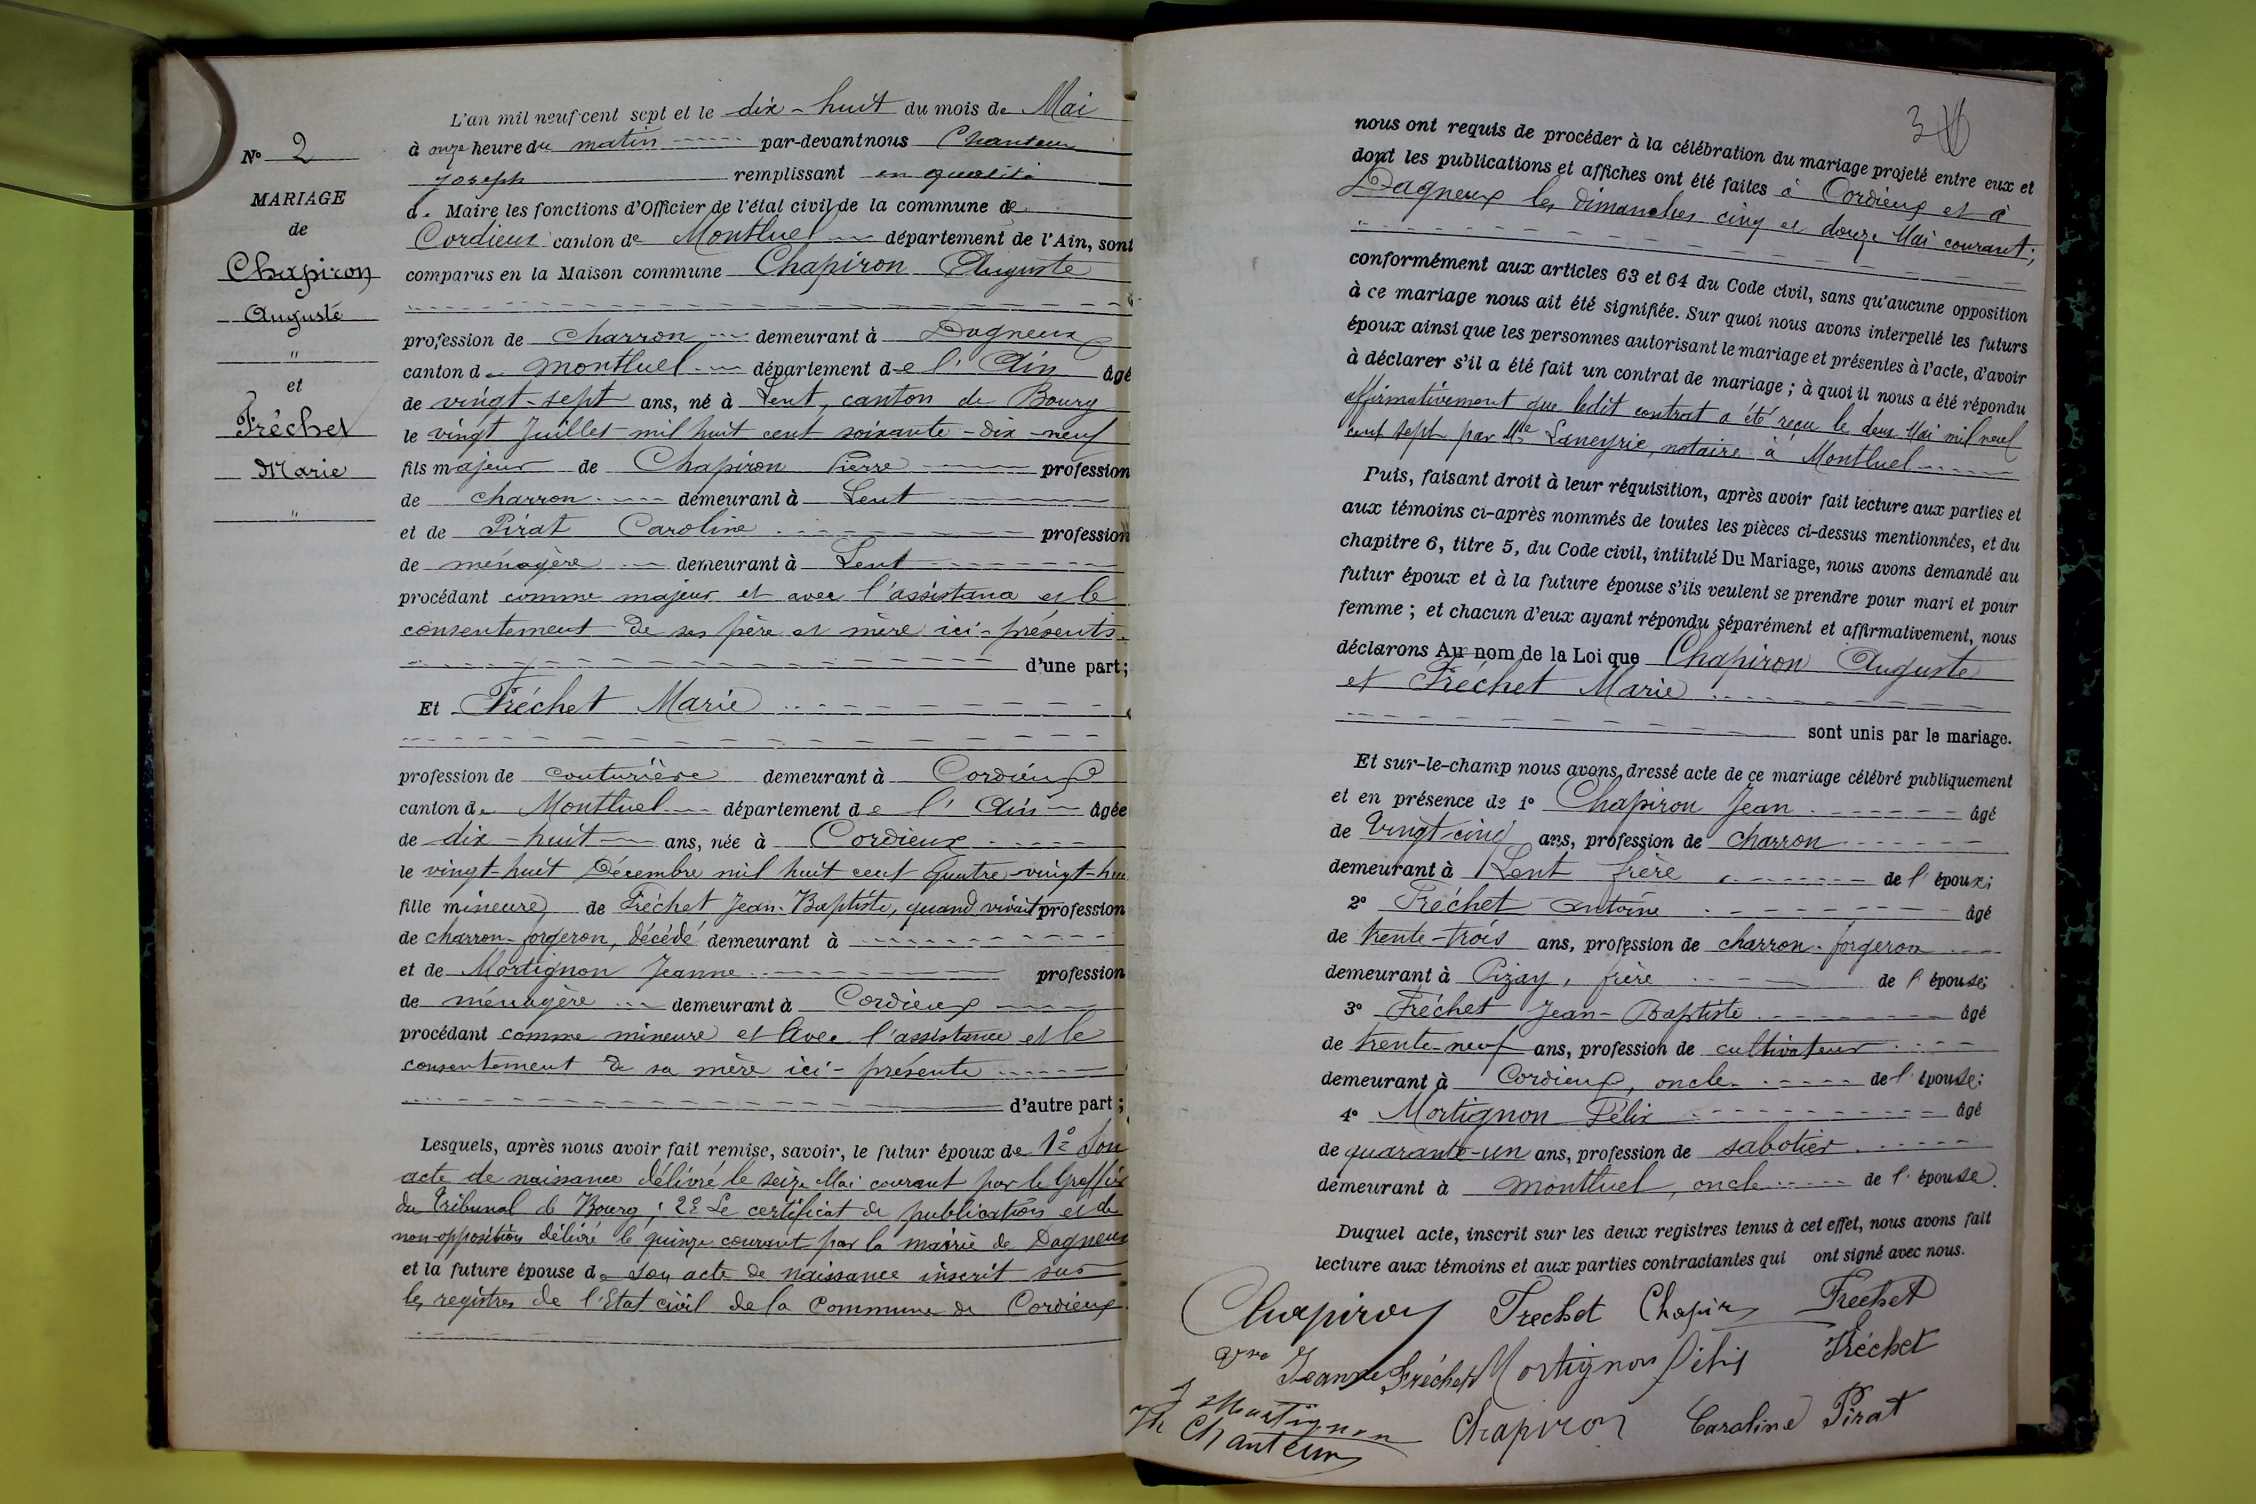 N° 2
MARIAGE
de
Chapiron
Auguste
"
et
Fréchet
Marie
"
L'an mil neuf cent sept et le dix-huit du mois de Mai
à onze heure du matin par-devant nous Chanteur
Joseph remplissant en qualité
de Maire les fonctions d'Officier de l'état civil de la commune de
Cordieux canton de Montluel département de l'Ain, sont
comparus en la Maison commune Chapiron Auguste
profession de charron demeurant à Dagneux
canton de Montluel département de l'Ain âgé
de vingt-sept ans, né à Lent, canton de Bourg
le vingt Juillet mil huit cent soixante-dix-neuf
fils majeur de Chapiron Pierre profession
de charron demeurant à Lent
et de Pirat Caroline profession
de ménagère demeurant à Lent
procédant comme majeur et avec l'assistance et le
consentement de ses père et mère ici-présents
d'une part;
Et Fréchet Marie
profession de couturière demeurant à Cordieux
canton de Montluel département de l'Ain âgée
de dix-huit ans, née à Cordieux
le vingt-huit Décembre mil huit cent quatre-vingt-hui
fille mineure de Fréchet Jean-Baptiste, quand vivait profession
de charron-forgeron, décédé demeurant à
et de Mortignon Jeanne profession
de ménagère demeurant à Cordieux
procédant comme mineure et avec l'assistance et le
consentement de sa mère ici-présente
d'autre part;
Lesquels, après nous avoir fait remise, savoir, le futur époux de 1° Son
acte de naissance délivré le seize Mai courant par le Greffier
du Tribunal de Bourg; 2° Le certificat de publication et de
non-opposition délivré le quinze courant par la mairie de Dagneux
et la future épouse de son acte de naissance inscrit sur
les registres de l'Etat civil de la Commune de Cordieux
3
nous ont requis de procéder à la célébration du mariage projeté entre eux et
dont les publications et affiches ont été faites à Cordieux et à
Dagneux les dimanches cinq et douze Mai courant;
conformément aux articles 63 et 64 du Code civil, sans qu'aucune opposition
à ce mariage nous ait été signifiée. Sur quoi nous avons interpellé les futurs
époux ainsi que les personnes autorisant le mariage et présentes à l'acte, d'avoir
à déclarer s'il a été fait un contrat de mariage; à quoi il nous a été répondu
affirmativement que ledit contrat a été reçu le deux Mai mil neuf
cent sept par Me Laneyrie, notaire à Montluel
Puis, faisant droit à leur réquisition, après avoir fait lecture aux parties et
aux témoins ci-après nommés de toutes les pièces ci-dessus mentionnées, et du
chapitre 6, titre 5, du Code civil, intitulé Du Mariage, nous avons demandé au
futur époux et à la future épouse s'ils veulent se prendre pour mari et pour
femme; et chacun d'eux ayant répondu séparément et affirmativement, nous
déclarons Au nom de la Loi que Chapiron Auguste
et Fréchet Marie
sont unis par le mariage.
Et sur-le-champ nous avons dressé acte de ce mariage célébré publiquement
et en présence de 1° Chapiron Jean âgé
de Vingt-cinq ans, profession de charron
demeurant à Lent frère de l'époux;
2° Fréchet Antoine âgé
de trente-trois ans, profession de charron-forgeron
demeurant à Pizay, frère de l'épouse;
3° Fréchet Jean-Baptiste âgé
de trente-neuf ans, profession de cultivateur
demeurant à Cordieux, oncle de l'épouse;
4° Mortignon Félix âgé
de quarante-un ans, profession de sabotier
demeurant à Montluel, oncle de l'épouse.
Duquel acte, inscrit sur les deux registres tenus à cet effet, nous avons fait
lecture aux témoins et aux parties contractantes qui ont signé avec nous.
Chapiron Frechet Chapiron Frechet
Vve Jeanne Fréchet Mortignon félix Fréchet
J Mortignon
Chanteur Chapiron Caroline Pirat